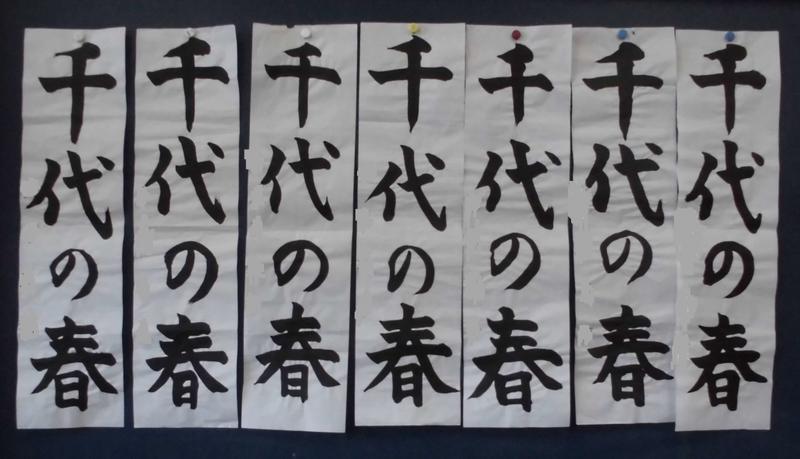 千代の春
千代の春
千代の春
千代の春
千代の春
千代の春
千代の春